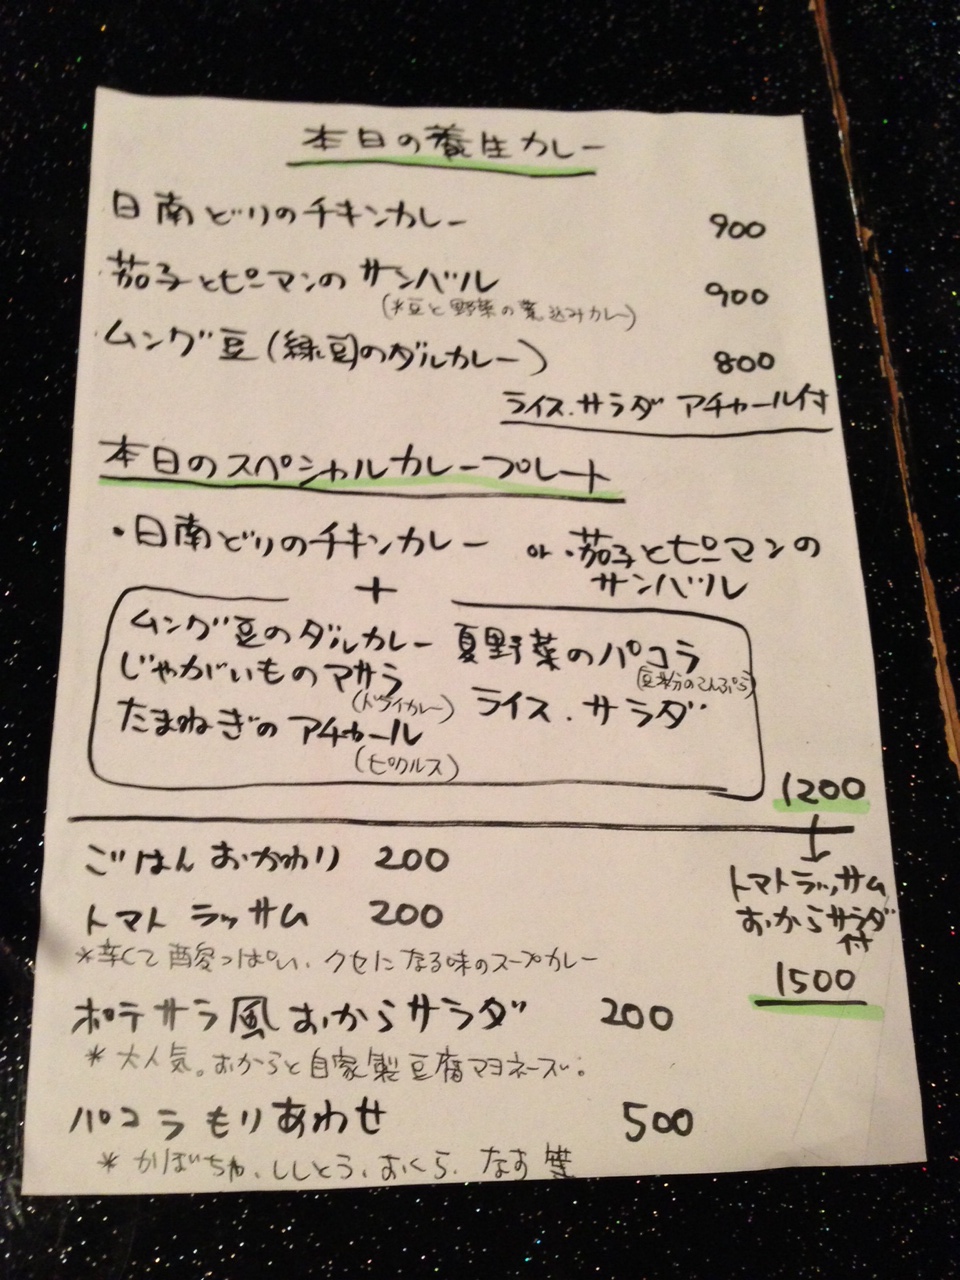 本日の養生カレー
日南どりのチキンカレー 900
茄子とピーマンのサンバル 900
(*豆と野菜の煮込みカレー)
ムング豆(緑豆)のダルカレー) 800
ライス.サラダ アチャール付
本日のスペシャルカレープレート
・日南どりのチキンカレー or ・茄子とピーマンの
サンバル
+
ムング豆のダルカレー
じゃがいものマサラ
(ドライカレー)
たまねぎのアチャール
(ピクルス)
夏野菜のパコラ
(豆粉のてんぷら)
ライス.サラダ
1200
↓
トマトラッサム
おからサラダ
付
1500
ごはんおかわり 200
トマトラッサム 200
*辛くて酸っぱい、クセになる味のスープカレー
ポテサラ風おからサラダ 200
*大人気。おからと自家製豆腐マヨネーズ。
パコラもりあわせ 500
*かぼちゃ、ししとう、おくら、なす等